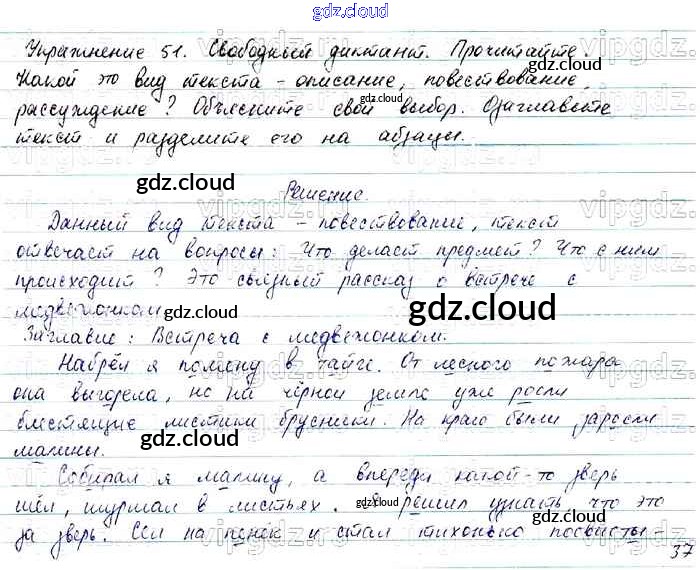 gdz.cloud
Упражнение 51. Свободный диктант. Прочитайте.
Какой это вид текста - описание, повествование,
рассуждение? Объясните свой выбор. Озаглавьте
текст и разделите его на абзацы.
Решение.
Данный вид текста - повествование, текст
отвечает на вопросы: Что делает предмет? Что с ним
происходит? Это связный рассказ о встрече с
медвежонком.
Заглавие: Встреча с медвежонком.
Набрёл я поляну в тайге. От лесного пожара
она выгорела, но на чёрной земле уже росли
блестящие листики брусники. На краю были заросли
малины.
Собирал я малину, а впереди какой-то зверь
шёл, шуршал в листьях. Я решил узнать что это
за зверь. Сел на пенёк и стал тихонько посвисты-
37